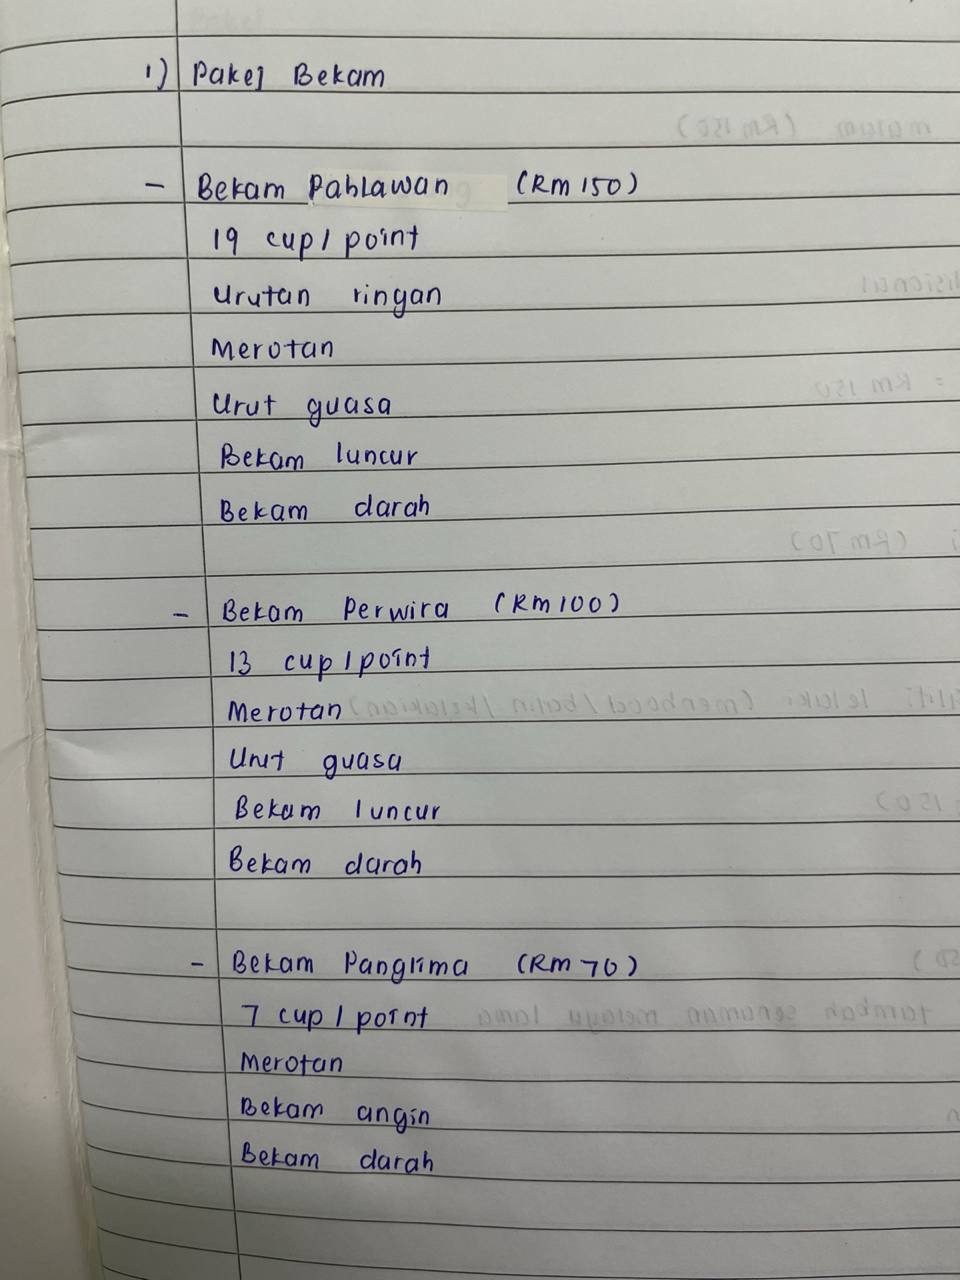 1) Pakej Bekam
- Bekam Pahlawan (RM 150)
19 cup / point
Urutan ringan
Merotan
Urut guasa
Bekam luncur
Bekam darah
- Bekam Perwira (RM 100)
13 cup / point
Merotan
Urut guasa
Bekam luncur
Bekam darah
- Bekam Panglima (RM 70)
7 cup / point
Merotan
Bekam angin
Bekam darah